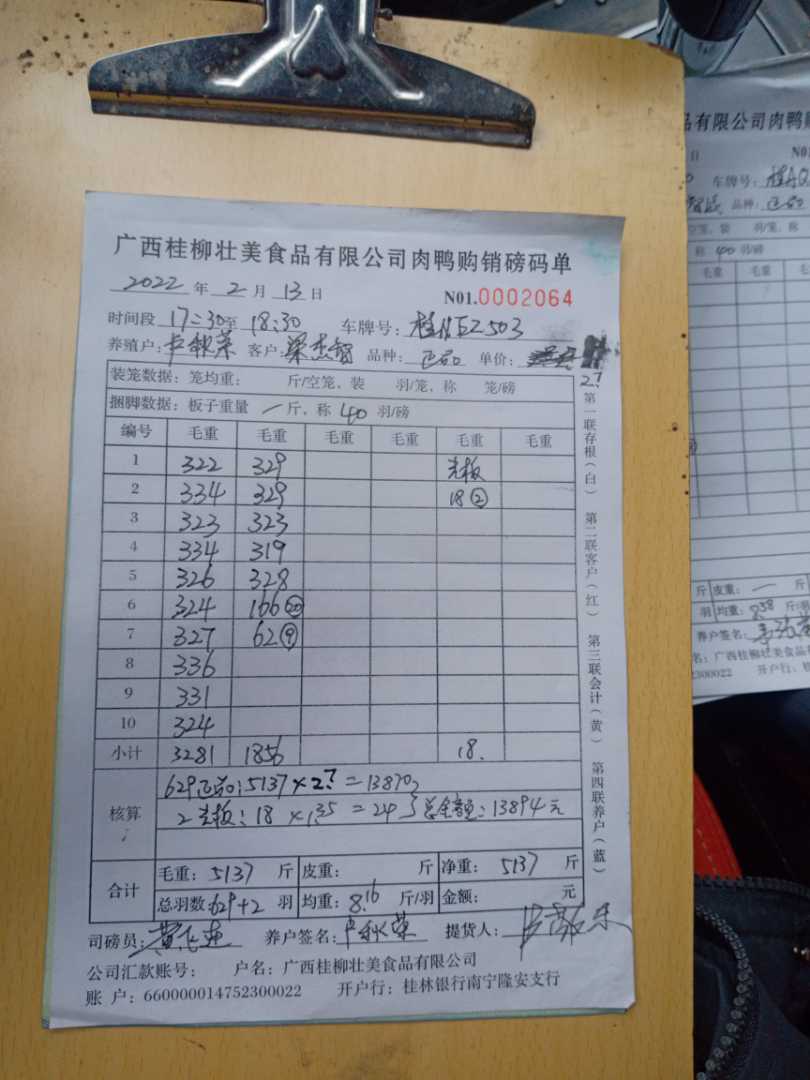 广西桂柳壮美食品有限公司肉鸭购销磅码单
2022 年 2 月 13 日 N01.0002064
时间段 17:30 至 18:30 车牌号: 桂AEZ503
养殖户: 卢秋荣 客户: 梁杰智 品种: 正品 单价:
2.7
装笼数据: 笼均重: 斤/空笼、装 羽/笼、称 笼/磅
捆脚数据: 板子重量 一 斤, 称 40 羽/磅
编号 毛重 毛重 毛重 毛重 毛重 毛重
1 322 329 光板
2 334 329 18②
3 323 323
4 334 319
5 326 328
6 324 166⑳
7 327 62⑨
8 336
9 331
10 324
小计 3281 1856 18.
核算
629正品: 5137×2.7=13870
2光板: 18×1.35=24 总金额: 13894元
合计
毛重: 5137 斤 皮重: 斤 净重: 5137 斤
总羽数 629+2 羽 均重: 8.16 斤/羽 金额: 元
司磅员: 养户签名: 卢秋荣 提货人:
公司汇款账号: 户名: 广西桂柳壮美食品有限公司
账 户: 660000014752300022 开户行: 桂林银行南宁隆安支行
第一联存根(白) 第二联客户(红) 第三联会计(黄) 第四联养户(蓝)
品有限公司肉鸭购
日 N01
车牌号: 桂A
品种: 正品
空笼、装 羽/笼、称
称 40 羽/磅
毛重 毛重
斤 皮重: 一 斤
羽 均重: 8.38 斤/羽
养户签名:
名: 广西桂柳壮美食品有
2300022 开户行: